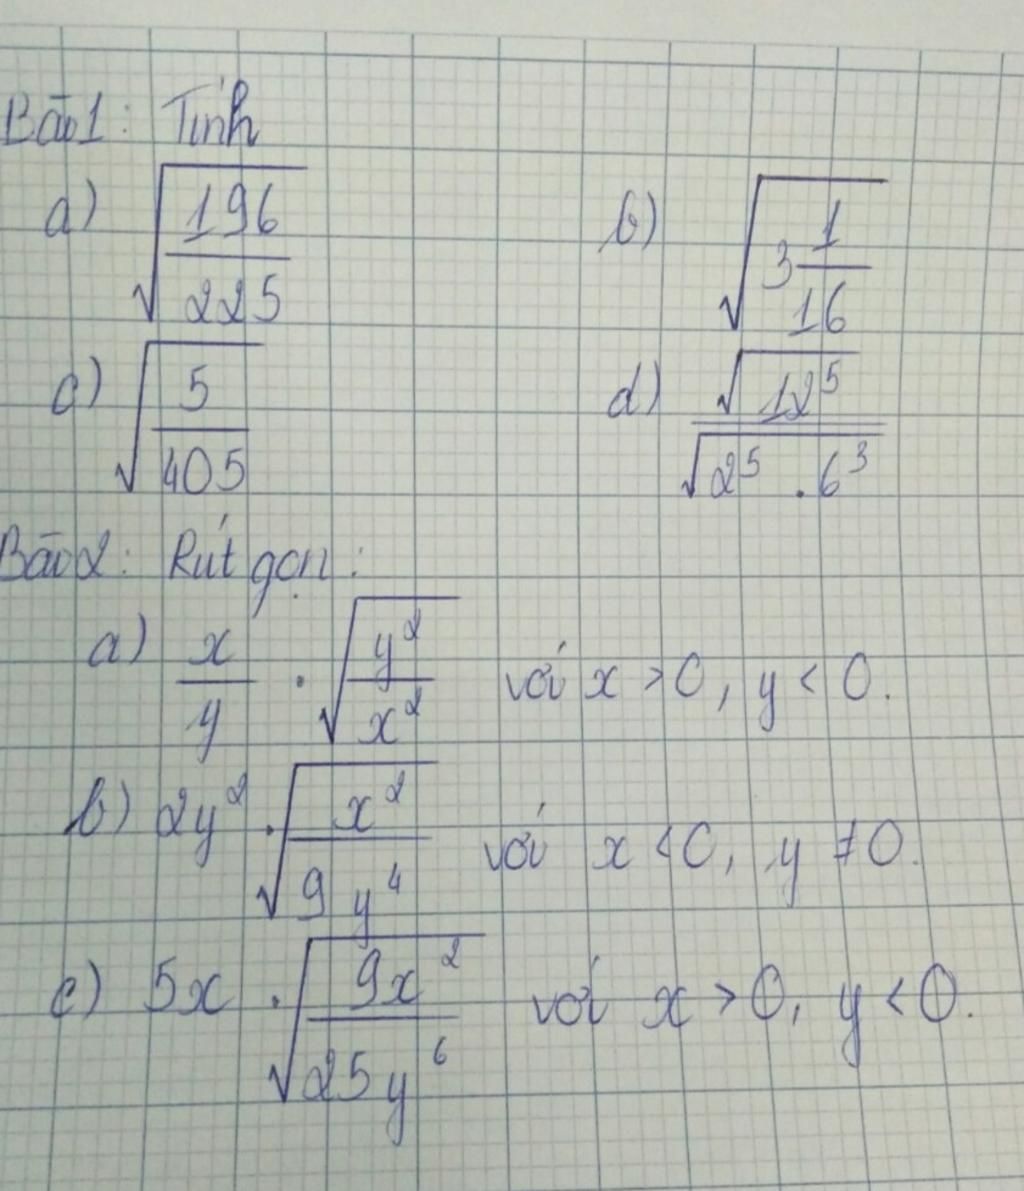 Bài 1: Tính
a) √(196/225) b) √(3 1/16)
c) √(5/405) d) √(12⁵)/√(2⁵ . 6³)
Bài 2: Rút gọn:
a) x/y . √(y²/x²) với x > 0, y < 0.
b) 2y² . √(x²/(9y⁴)) với x < 0, y ≠ 0.
c) 5x . √(9x²/(25y⁶)) với x > 0, y < 0.